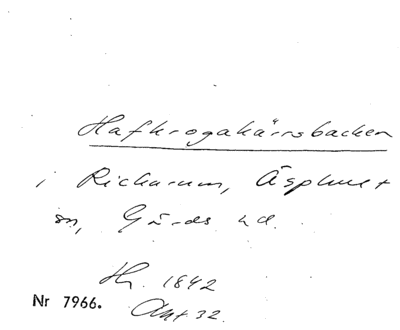 Hafkrogakärrsbacken
i Rickarum, Äsphult
sn, Gärds hd.
Hr. 1842
Nr 7966. Akt 32.